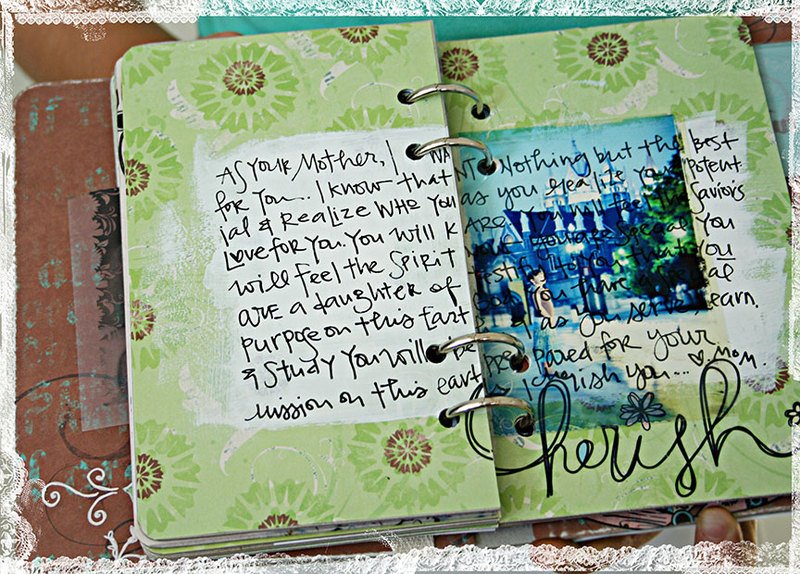 As your Mother, I WANT Nothing but the best
for You. I know that as you realize your potent
ial & Realize WHO YOU ARE You will feel the Saviors
Love for you. You will know you are special you
will feel the Spirit testify to you that you
are a daughter of God You have a special
purpose on this Earth as you serve, learn.
& Study You will be prepared for your
mission on this earth I cherish you... Mom.
Cherish